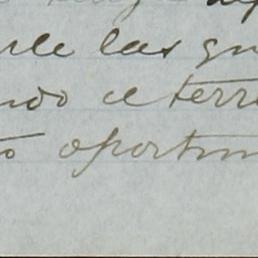 rle las gu
ndo el terr
to oportun